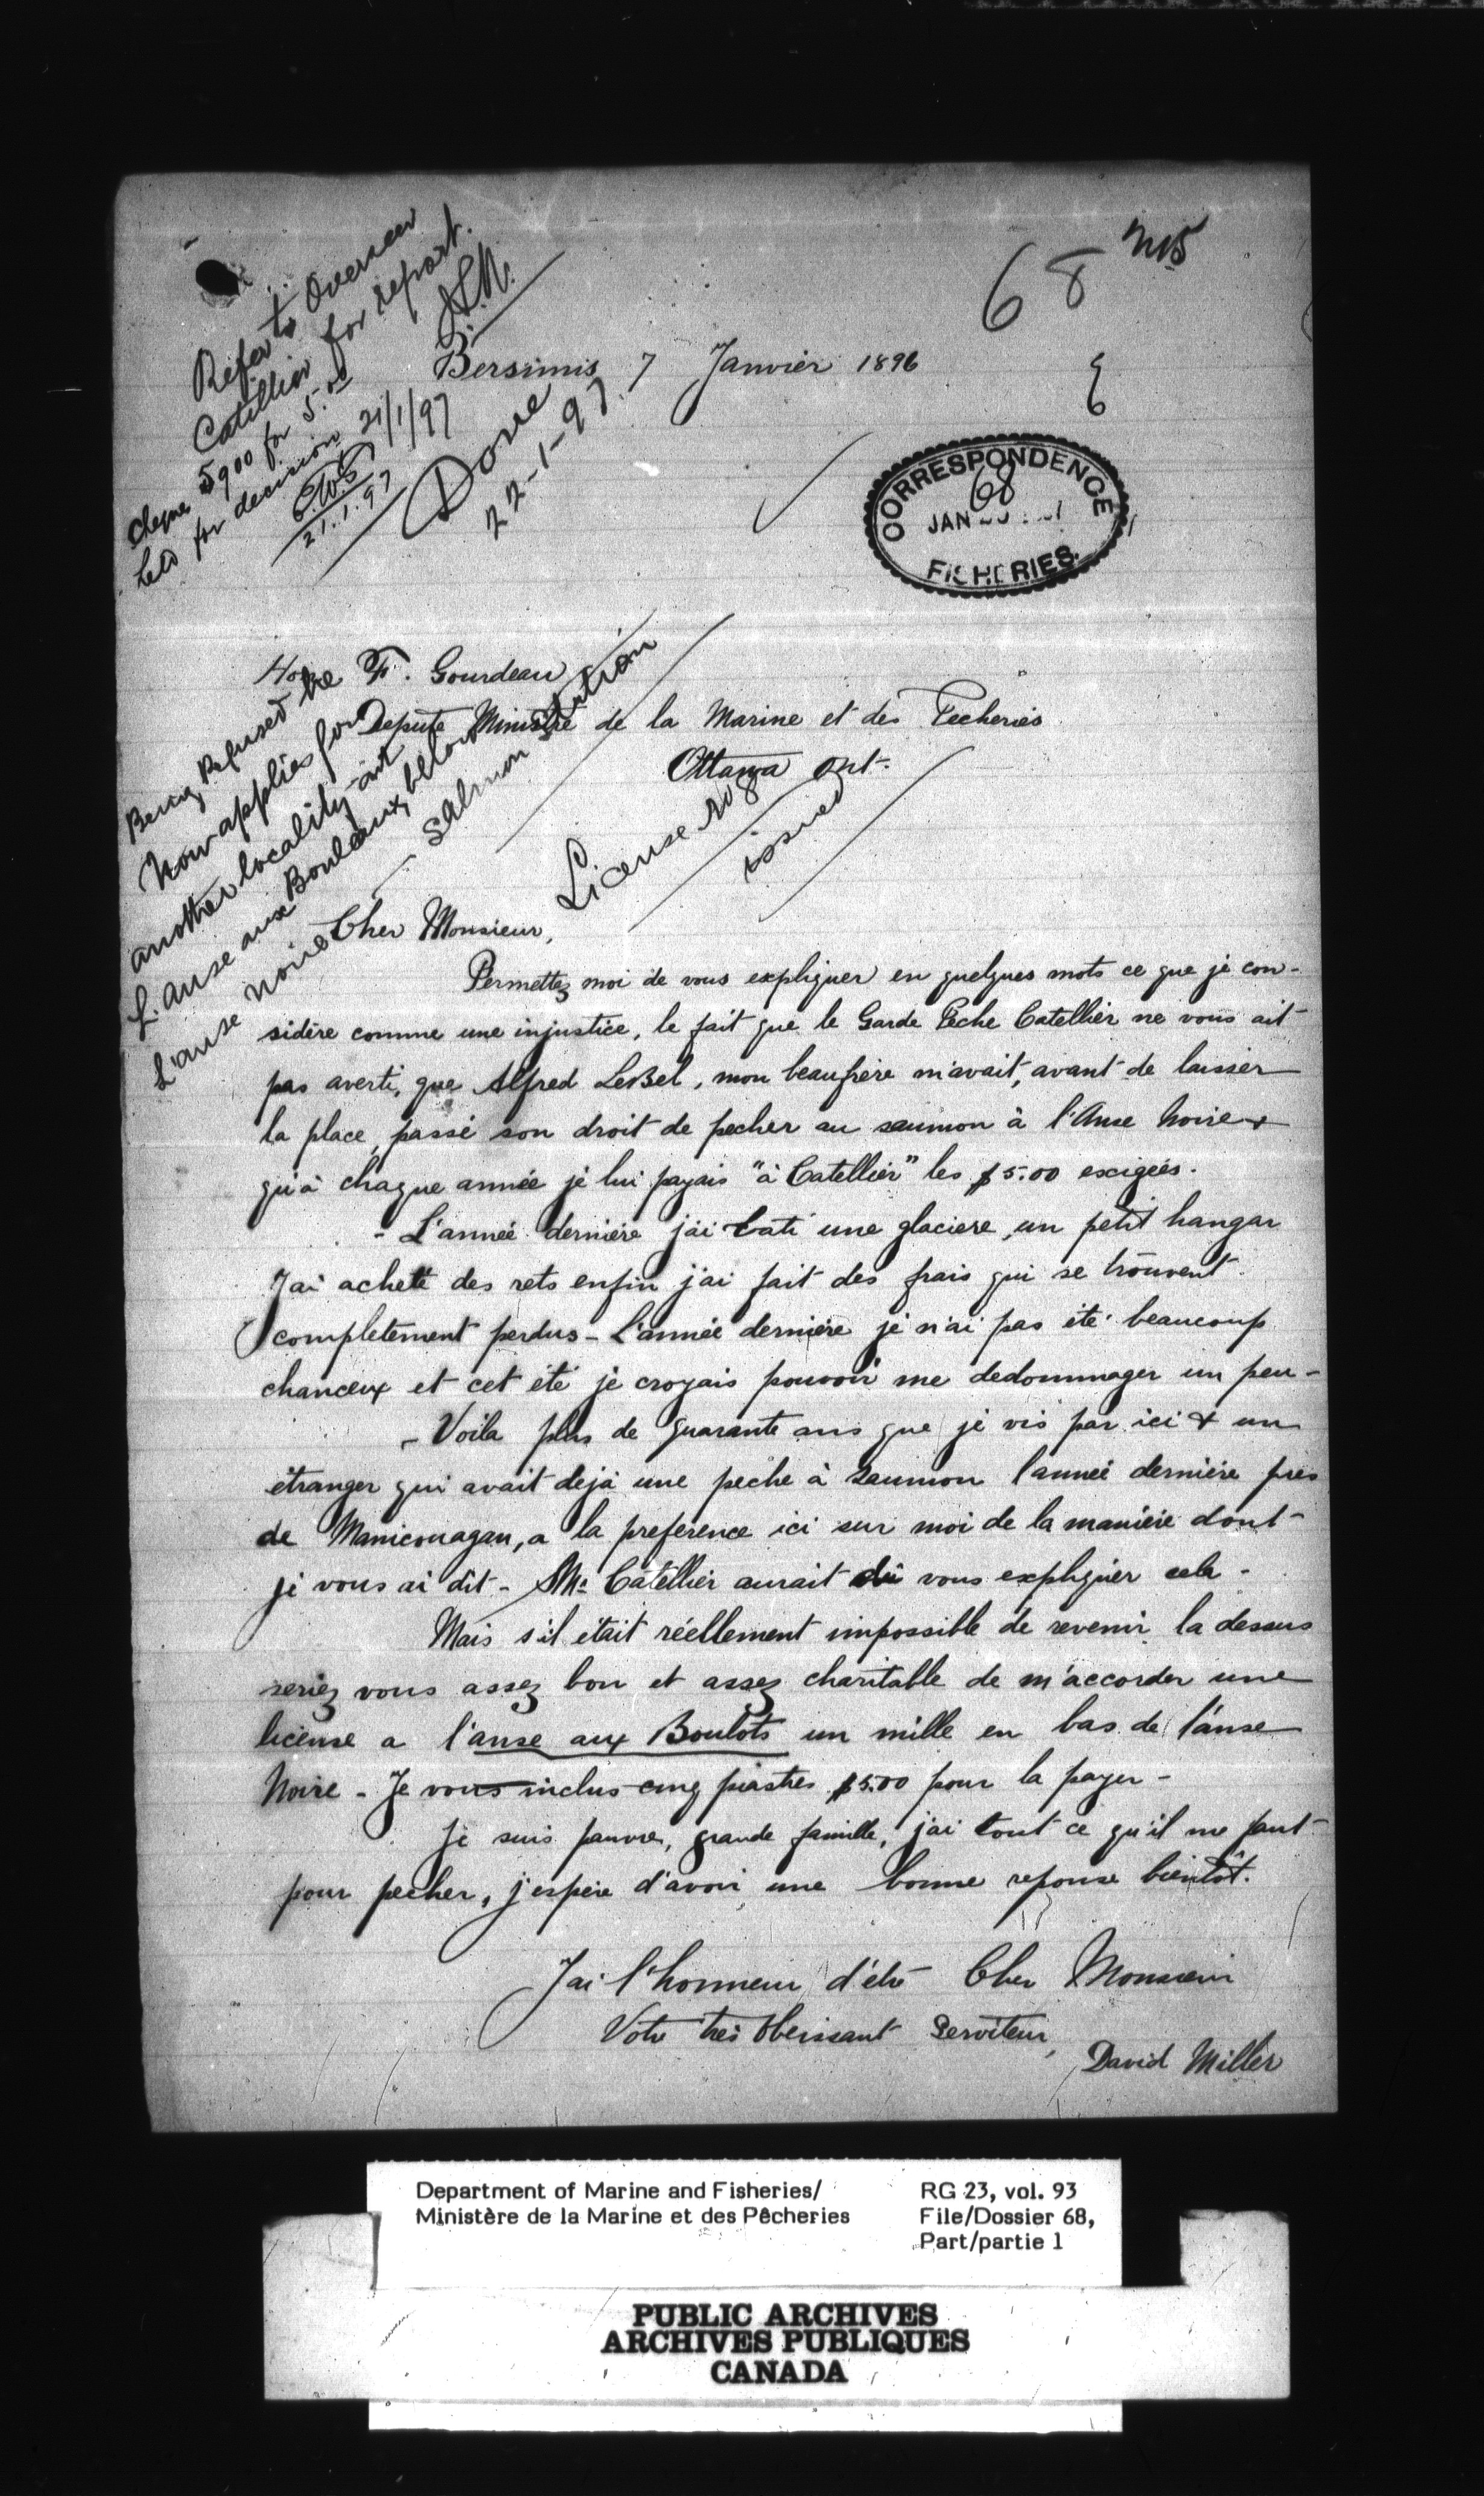 68
Refer to Overseer
Catellier for report.
Cheque 5900 for 5.00
held for decision 21/1/97
21.1.97
Done
22-1-97.
Bersimis 7 Janvier 1896
CORRESPONDENCE
68
JAN
FISHERIES.
F. Gourdeau
Deputé Ministre de la Marine et des Pecheries
Ottawa Ont.
Being Refused the
Now applies for
another locality
L'anse aux Bouleaux, below
L'anse noire - Salmon Station
License No 8
issued
Cher Monsieur,
Permettez moi de vous expliquer en quelques mots ce que je con-
sidère comme une injustice, le fait que le Garde Pêche Catellier ne vous ait
pas averti, que Alfred LeBel, mon beaufrère m'avait, avant de laisser
la place, passé son droit de pecher au saumon à l'Anse Noire &
qu'à chaque année je lui payais "à Catellier" les $5.00 exigées.
- L'année dernière j'ai bati une glaciere, un petit hangar
J'ai acheté des rets enfin j'ai fait des frais qui se trouvent
completement perdus - L'année dernière je n'ai pas été beaucoup
chanceux et cet été je croyais pouvoir me dedommager un peu -
- Voila plus de quarante ans que je vis par ici & un
étranger qui avait dejà une peche à saumon l'année dernière près
de Manicouagan, a la preference ici sur moi de la manière dont
je vous ai dit - Mr. Catellier aurait dû vous expliquer cela -
Mais s'il était réellement impossible de revenir la dessus
seriez vous assez bon et assez charitable de m'accorder une
license a l'anse aux Boulots un mille en bas de l'anse
Noire - Je vous inclus cinq piastres $5.00 pour la payer -
Je suis pauvre, grande famille, j'ai tout ce qu'il me faut
pour pecher, j'espère d'avoir une bonne reponse bientôt.
J'ai l'honneur d'être Cher Monsieur
Votre très Obeissant Serviteur,
David Miller
Department of Marine and Fisheries/
Ministère de la Marine et des Pêcheries
RG 23, vol. 93
File/Dossier 68,
Part/partie 1
PUBLIC ARCHIVES
ARCHIVES PUBLIQUES
CANADA